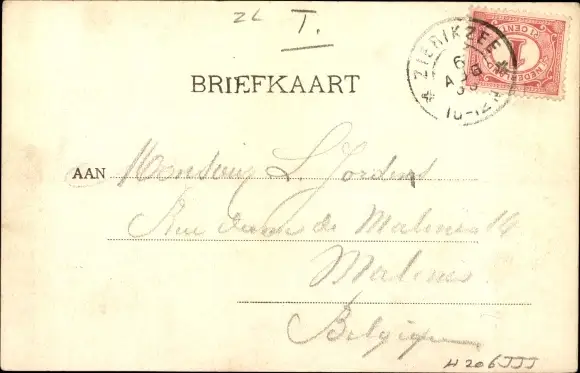 ZL T.
ZIERIKZEE
6
AUG
10-12
1 CENT
NEDERLAND
1
BRIEFKAART
AAN Monsieur L. Jordens
Rue de Malines 14
Malines
Belgique
H206JJJ